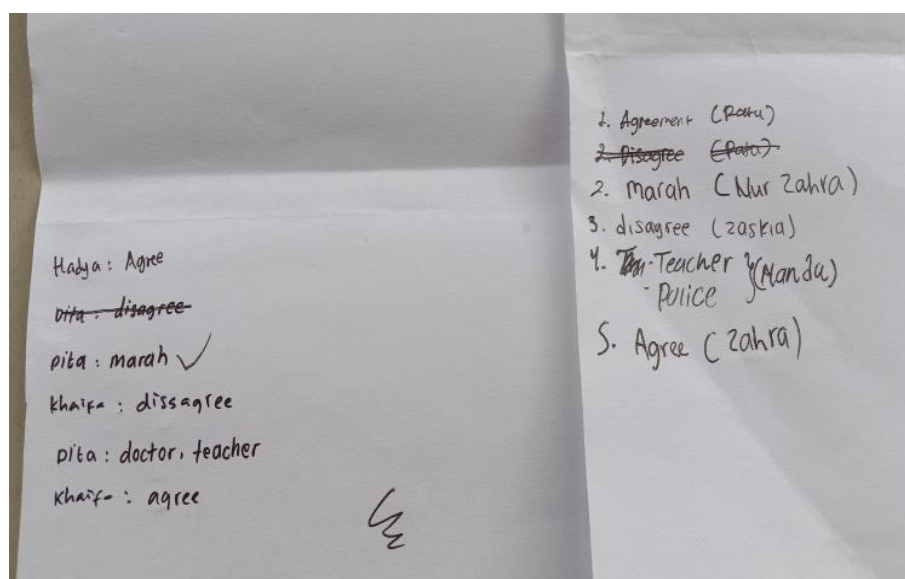 Hadya : Agree
Dita : disagree
Dita : marah ✓
Khaifa : dissagree
Dita : doctor, teacher
Khaifa : agree
1. Agreement (Ratu)
2. Disagree (Ratu)
2. marah (Nur Zahra)
3. disagree (zaskia)
4. - Teacher } (Nanda)
- Police
5. Agree (Zahra)